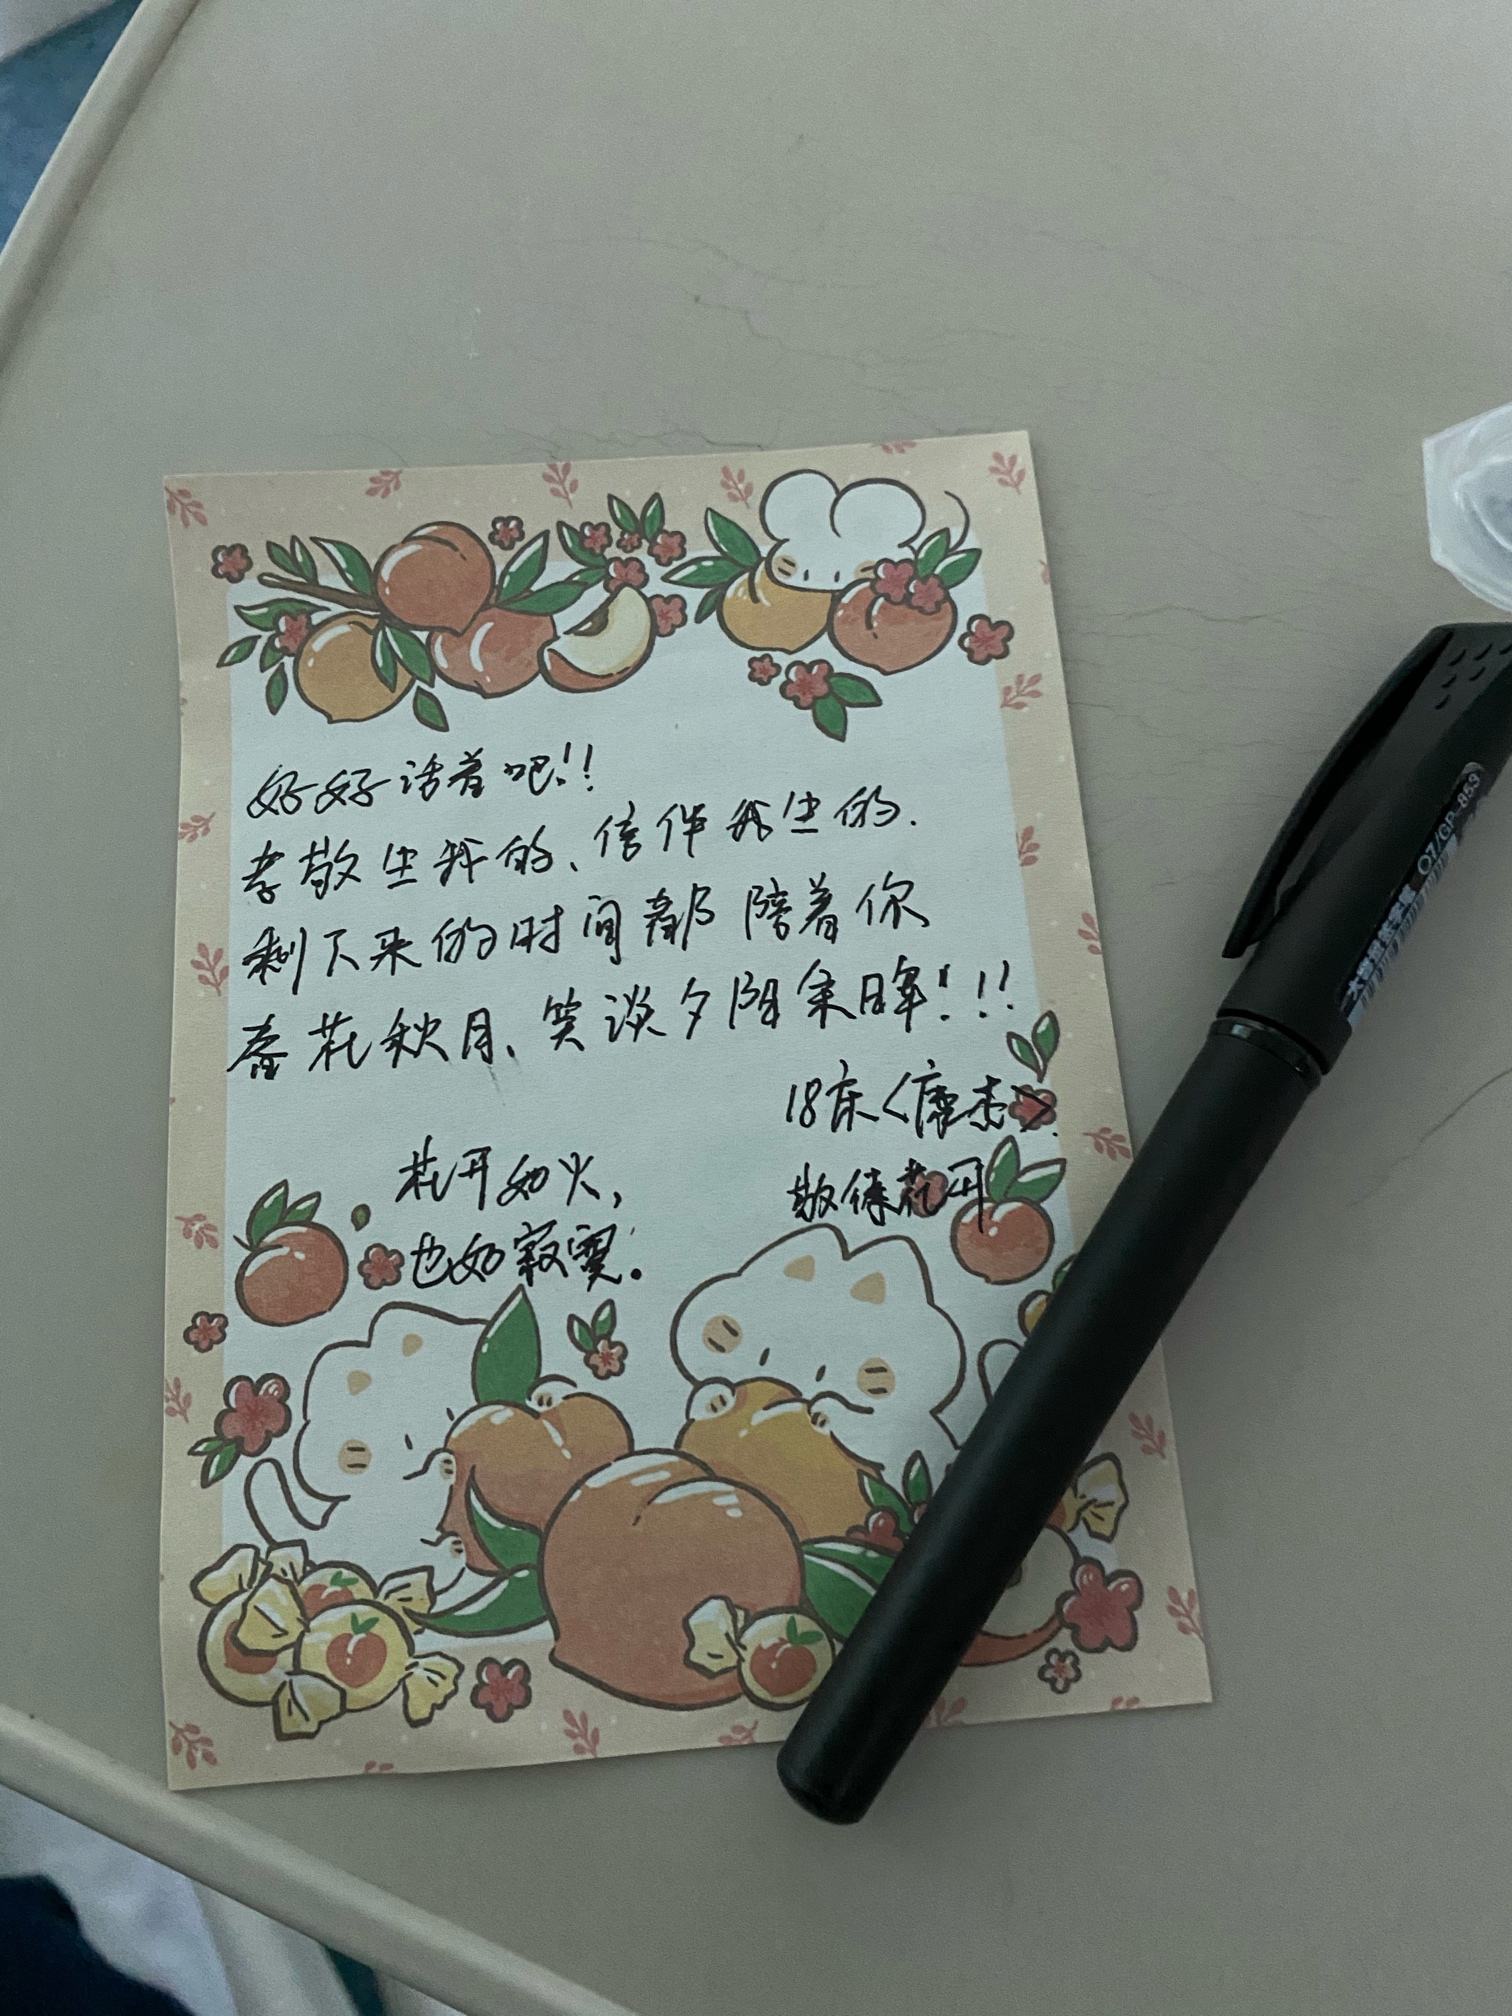 好好活着吧!!
孝敬生我的、信伴我生的.
剩下来的时间都陪着你
春花秋月、笑谈夕阳余晖!!!
18床<唐杰>.
敬候花开
花开如火,
也如寂寞.
大容量签字笔 07/GP-853